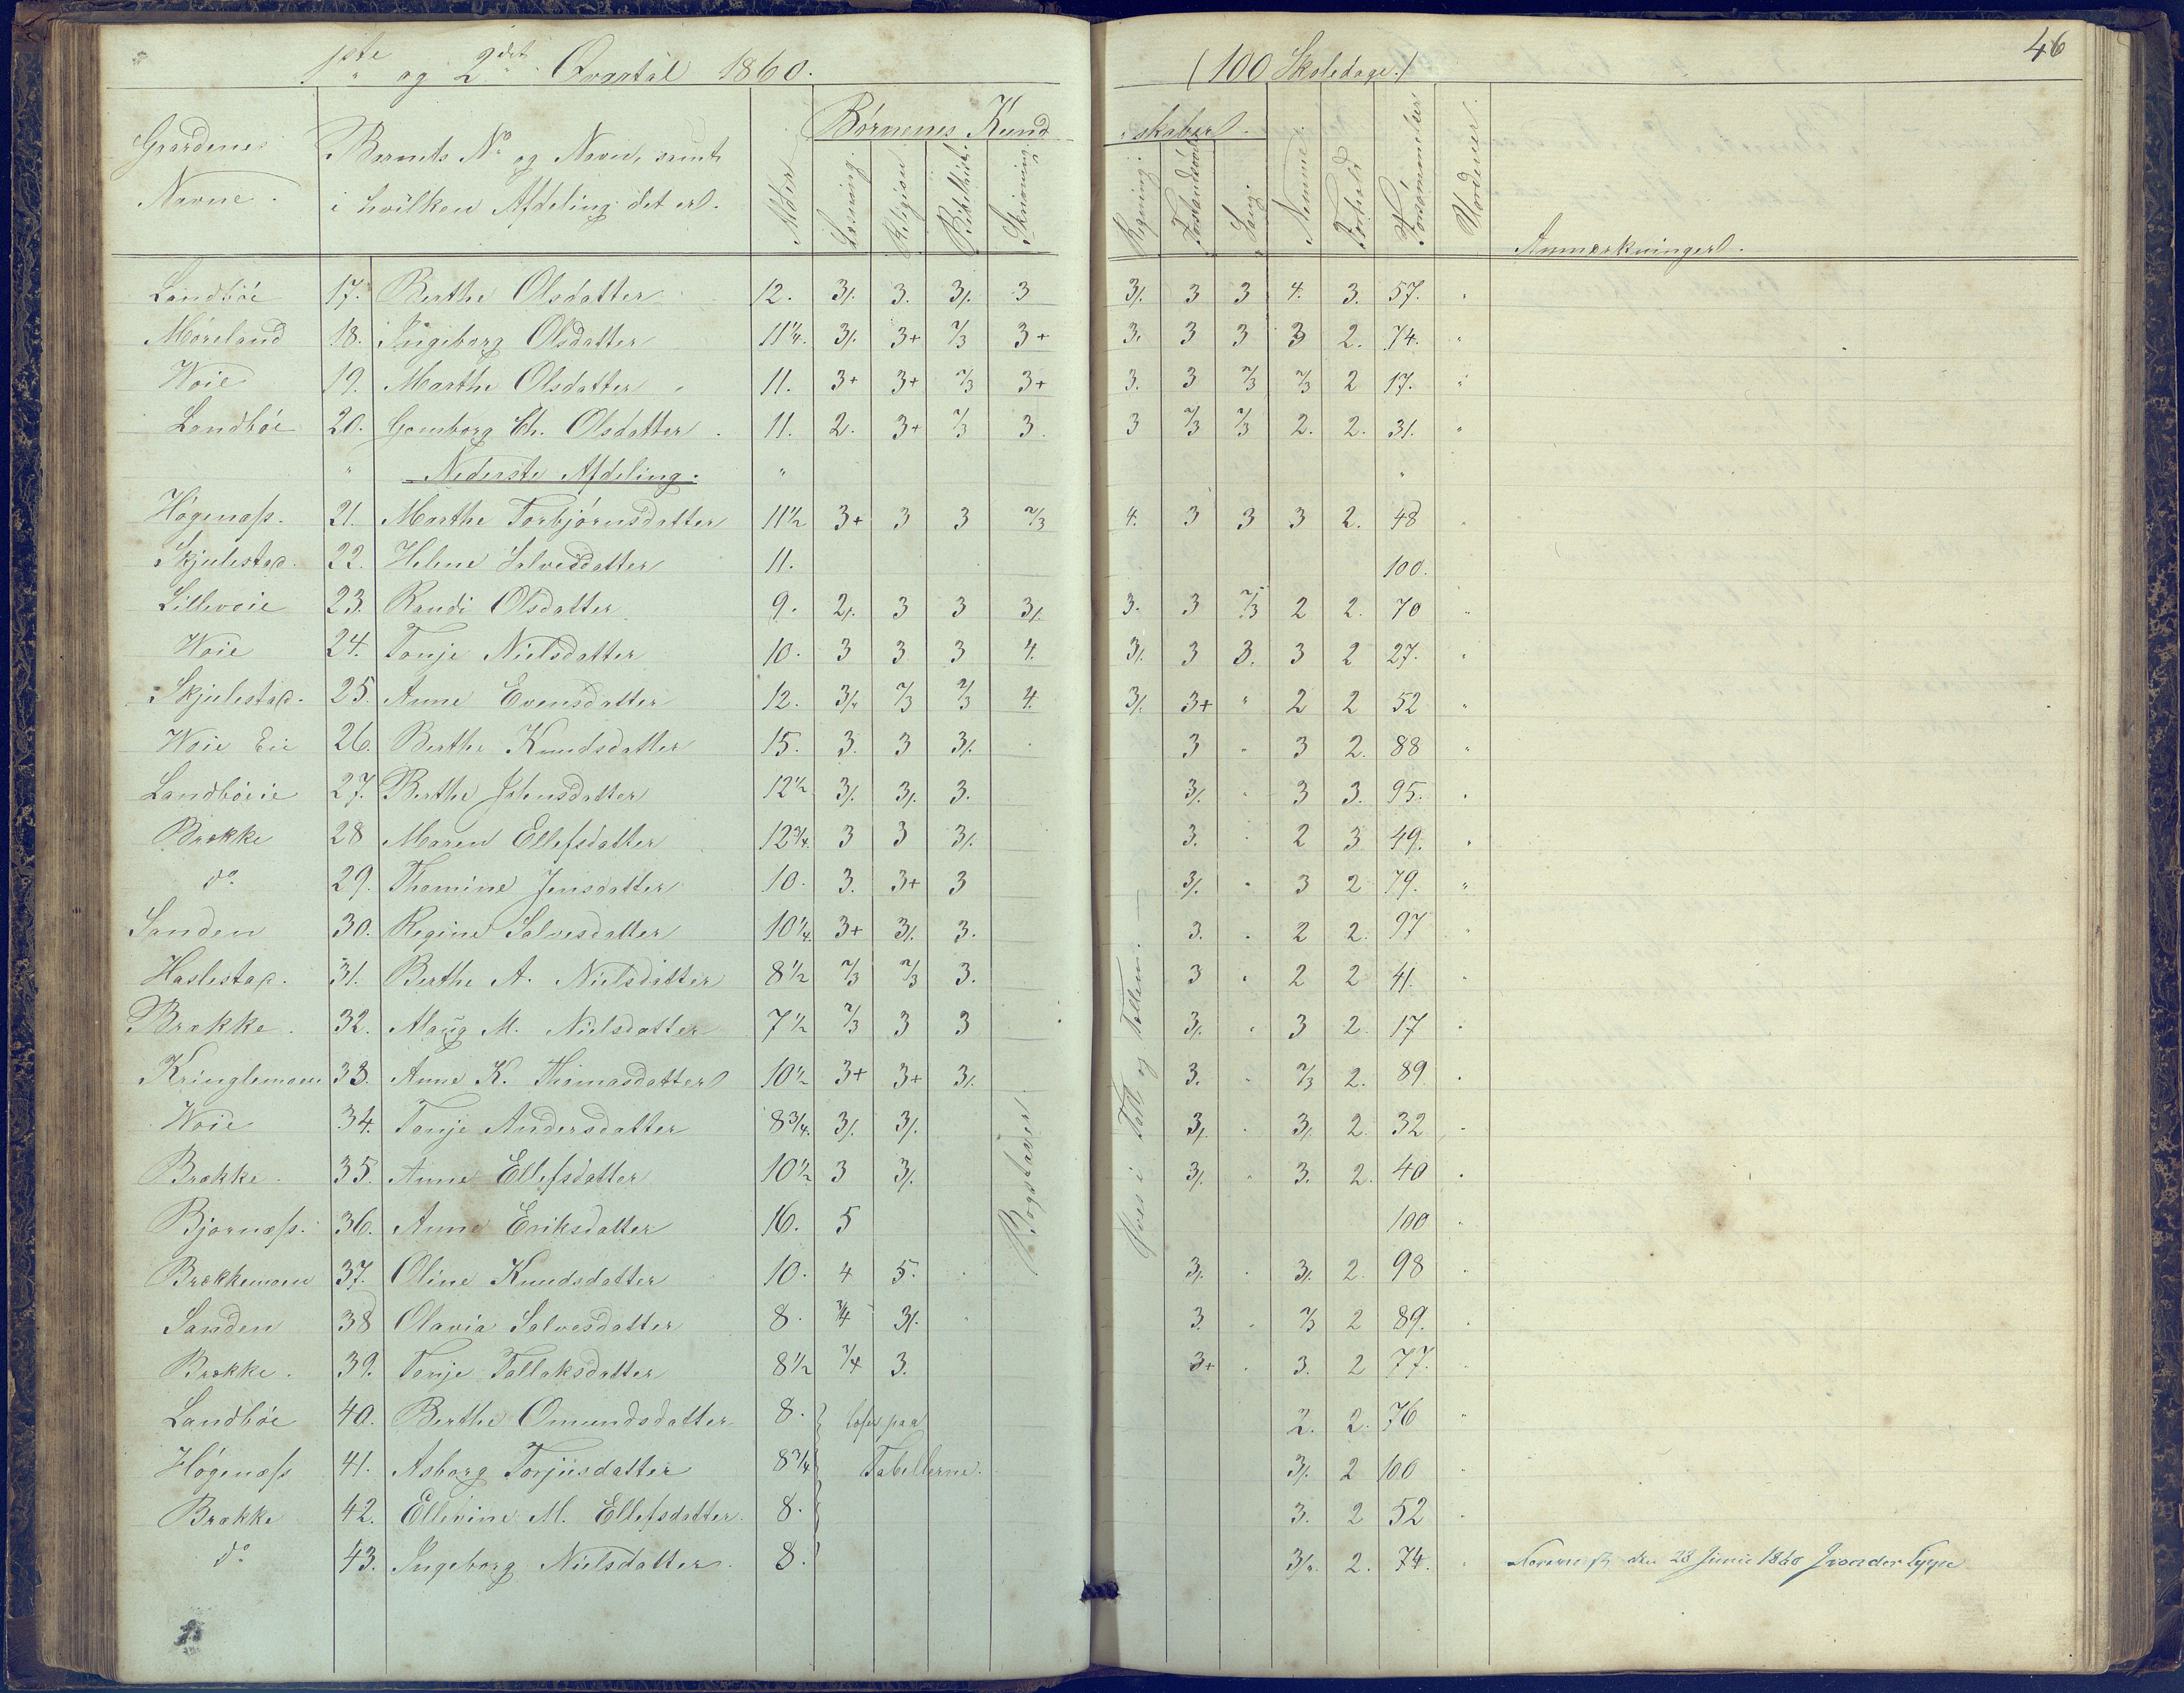 1ste og 2det Qvartal 1860.
(100 Skoledage.)
46
Gaardenes Navne.
Barnets No og Navn, samt i hvilken Afdeling det er.
Alder
Børnenes Kundskaber.
Læsning.
Religion
Bibelhist.
Skrivning.
Regning.
Forstandsøvelser
Sang.
Nemme.
Forhold
Forsømmelser
Uordener.
Anmærkninger.
Landbøe 17. Berthe Olsdatter 12. 3/. 3. 3/. 3 3/. 3 3 4. 3. 57. "
Møreland 18. Ingeborg Olsdatter 11 1/4. 3/. 3+ 2/3 3+ 3. 3 3 3 2. 74. "
Woie 19. Marthe Olsdatter 11. 3+ 3+ 2/3 3+ 3. 3 2/3 2/3 2 17. "
Landbøe 20. Gomborg Ch. Olsdatter 11. 2. 3+ 2/3 3. 3 2/3 2/3 2. 2. 31. "
" Nederste Afdeling. " "
Høgenæss. 21. Marthe Torbjørnsdatter 11 1/2 3+ 3 3 2/3 4. 3 3 3 2. 48 "
Skjulestad. 22. Helene Salvesdatter 11. 100.
Lillevoie 23. Randi Olsdatter 9. 2/. 3 3 3/. 3. 3 2/3 2 2. 70 "
Woie 24. Tonje Nielsdatter 10. 3 3 3 4. 3/. 3 3. 3 2 27. "
Skjulestad. 25. Anne Evensdatter 12. 3/. 2/3 2/3 4. 3/. 3+ " 2 2 52 "
Woie Eie 26. Berthe Knudsdatter 15. 3. 3 3/. 3 " 3 2. 88 "
Landbøeie 27. Berthe Johnsdatter 12 1/2 3/. 3/. 3. 3/. " 3 3. 95. "
Brække 28 Maren Ellefsdatter 12 3/4. 3 3 3/. 3. " 2 3 49. "
do. 29. Thomine Jensdatter 10. 3. 3+ 3 3/. " 3 2 79. "
Sanden 30. Regine Salvesdatter 10 1/4. 3+ 3/. 3. 3. " 2 2. 97 "
Haslestad. 31. Berthe A. Nielsdatter 8 1/2 2/3 2/3 3. 3 " 2 2 41. "
Brække. 32. Alaug M. Nielsdatter 7 1/2 2/3 3 3 3/. " 3 2. 17 "
Kringlemoen 33. Anne K. Thomasdatter 10 1/2 3+ 3+ 3/. 3. " 2/3 2. 89. "
Woie 34. Tonje Andersdatter 8 3/4. 3/. 3/. 3/. " 3/. 2. 32 "
Brække. 35. Anne Ellefsdatter 10 1/2 3 3/. 3/. " 3. 2. 40 "
Bjornæss. 36. Anne Eriksdatter 16. 5 100 "
Brækkemoen 37. Oline Knudsdatter 10. 4 5. 3/. " 3/. 2. 98 "
Sanden 38 Olavia Salvesdatter 8. 3/4 3/. 3. " 2/3 2 89. "
Brække. 39. Tonje Tallaksdatter 8 1/2 3/4 3. 3+ " 3. 2 77. "
Landbøe 40. Berthe Omundsdatter 8. læser paa 2. 2. 76 "
Høgenæss 41. Asborg Torjusdatter 8 3/4 Tabellerne. 3/. 2 100 "
Brække 42. Ellevine M. Ellefsdatter. 8. 3. 2 52 "
do 43. Ingeborg Nielsdatter. 8. 3/. 2. 74. "
Bogstaver.
Øves i Tall og Tællen.
den 28 Junie 1860